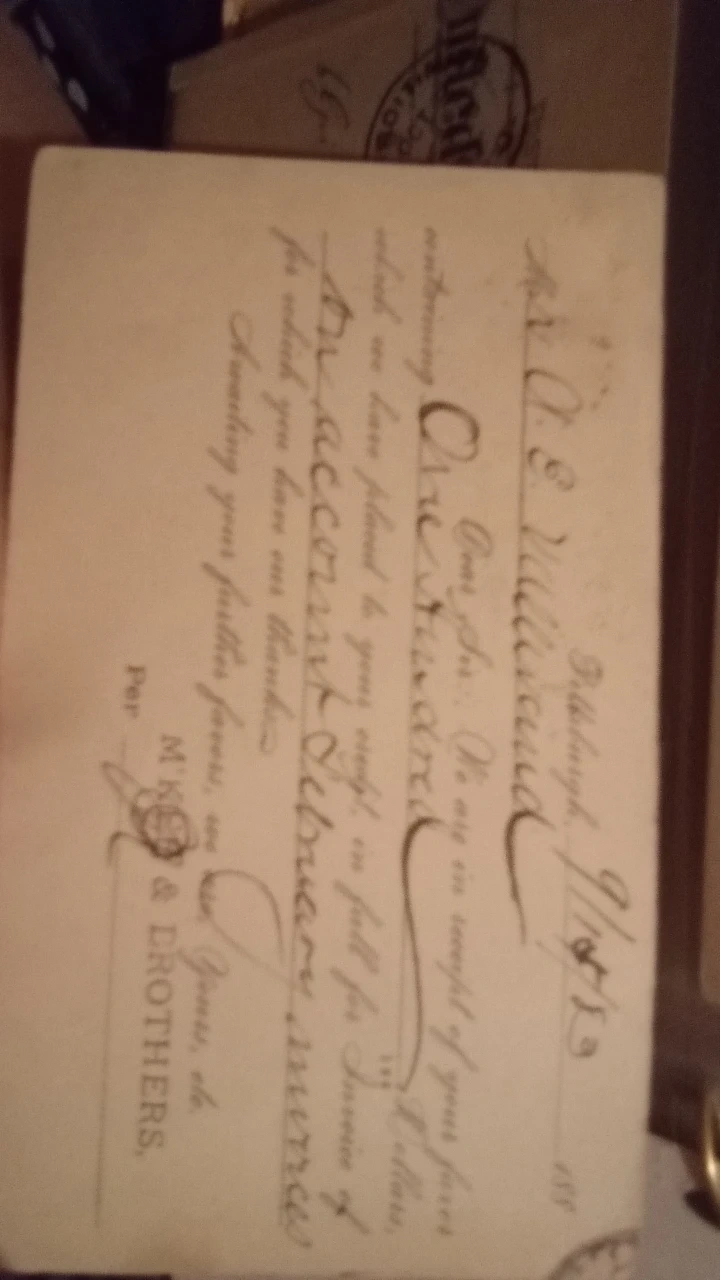 Pittsburgh, 9/18/89 188
Mr. A. E.
Dear Sir: We are in receipt of your favor
containing One Hundred Dollars,
which we have placed to your credit, in full for Invoice of
On account February invoices
for which you have our thanks
Awaiting your further favors, we are, Yours, etc.
M'KEE & BROTHERS.
Per